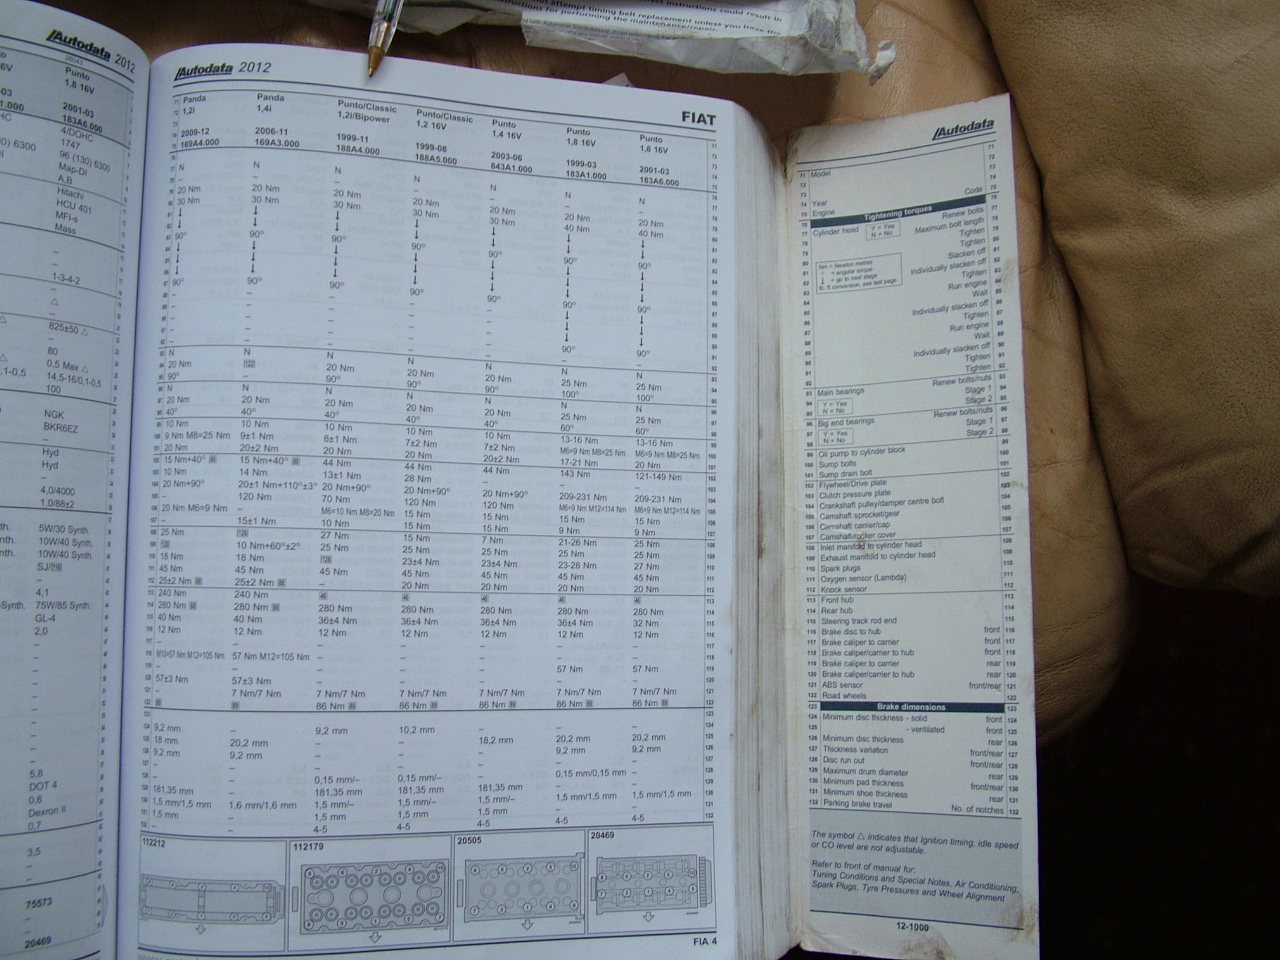 instructions could result in
not attempt timing belt replacement unless you have the
instructions for performing the maintenance/repair.
Autodata 2012
Punto
1.8 16V
2001-03
183A6.000
4/DOHC
1747
96 (130) 6300
Map-DI
A,B
Hitachi
HCU 401
MFI-s
Mass
1-3-4-2
△
825±50 △
80
0,5 Max △
14,5-16/0,1-0,5
100
NGK
BKR6EZ
Hyd
Hyd
4,0/4000
1,0/88±2
5W/30 Synth.
10W/40 Synth.
10W/40 Synth.
4,1
75W/85 Synth.
GL-4
2,0
5,8
DOT 4
0,6
Dexron II
0,7
3,5
75573
20469
Autodata 2012
FIAT
Panda Panda Punto/Classic Punto/Classic Punto Punto Punto
1,2i 1,4i 1,2i/Bipower 1,2 16V 1,4 16V 1,8 16V 1,8 16V
2009-12 2006-11 1999-11 1999-08 2003-06 1999-03 2001-03
169A4.000 169A3.000 188A4.000 188A5.000 843A1.000 183A1.000 183A6.000
N N N N N N N
– – – – – – –
20 Nm 20 Nm 20 Nm 20 Nm 20 Nm 20 Nm 20 Nm
30 Nm 30 Nm 30 Nm 30 Nm 30 Nm 40 Nm 40 Nm
↓ ↓ ↓ ↓ ↓ ↓ ↓
90° 90° 90° 90° 90° 90° 90°
↓ ↓ ↓ ↓ ↓ ↓ ↓
90° 90° 90° 90° 90° 90° 90°
↓ ↓
90° 90°
N N N N N N N
20 Nm 20 Nm 20 Nm 20 Nm 25 Nm 25 Nm
90° – 90° 90° 90° 100° 100°
N N N N N N N
20 Nm 20 Nm 20 Nm 20 Nm 20 Nm 25 Nm 25 Nm
40° 40° 40° 40° 40° 60° 60°
10 Nm 10 Nm 10 Nm 10 Nm 10 Nm 13-16 Nm 13-16 Nm
9 Nm M8=25 Nm 9±1 Nm 8±1 Nm 7±2 Nm 7±2 Nm M6=9 Nm M8=25 Nm M6=9 Nm M8=25 Nm
20 Nm 20±2 Nm 20 Nm 20 Nm 20±2 Nm 17-21 Nm 20 Nm
15 Nm+40° 15 Nm+40° 44 Nm 28 Nm 44 Nm 143 Nm 121-149 Nm
10 Nm 14 Nm 13±1 Nm – – – –
20 Nm+90° 20±1 Nm+110°±3° 20 Nm+90° 20 Nm+90° 20 Nm+90° 209-231 Nm 209-231 Nm
– 120 Nm 70 Nm 120 Nm 120 Nm M6=9 Nm M12=114 Nm M6=9 Nm M12=114 Nm
20 Nm M6=9 Nm – M6=10 Nm M8=20 Nm 15 Nm 15 Nm 15 Nm 15 Nm
– 15±1 Nm 10 Nm 15 Nm 15 Nm 9 Nm 9 Nm
25 Nm 27 Nm 15 Nm 7 Nm 21-26 Nm 25 Nm
10 Nm+60°±2° 25 Nm 25 Nm 25 Nm 25 Nm 25 Nm
18 Nm 18 Nm 23±4 Nm 23±4 Nm 23-28 Nm 27 Nm
45 Nm 45 Nm 45 Nm 45 Nm 45 Nm 45 Nm 45 Nm
25±2 Nm 25±2 Nm – 20 Nm 20 Nm 20 Nm 20 Nm
240 Nm 240 Nm
280 Nm 280 Nm 280 Nm 280 Nm 280 Nm 280 Nm 280 Nm
40 Nm 40 Nm 36±4 Nm 36±4 Nm 36±4 Nm 36±4 Nm 32 Nm
12 Nm 12 Nm 12 Nm 12 Nm 12 Nm 12 Nm 12 Nm
– – – – – – –
M10=57 Nm M12=105 Nm 57 Nm M12=105 Nm – – – – –
– – – – – 57 Nm 57 Nm
57±3 Nm 57±3 Nm – – – – –
– 7 Nm/7 Nm 7 Nm/7 Nm 7 Nm/7 Nm 7 Nm/7 Nm 7 Nm/7 Nm 7 Nm/7 Nm
86 Nm 86 Nm 86 Nm 86 Nm 86 Nm
9,2 mm – 9,2 mm 10,2 mm – – –
18 mm 20,2 mm – – 18,2 mm 20,2 mm 20,2 mm
9,2 mm 9,2 mm – – – 9,2 mm 9,2 mm
– – – – – – –
– – 0,15 mm/– 0,15 mm/– – 0,15 mm/0,15 mm –
181,35 mm – 181,35 mm 181,35 mm 181,35 mm – –
1,5 mm/1,5 mm 1,6 mm/1,6 mm 1,5 mm/– 1,5 mm/– 1,5 mm/– 1,5 mm/1,5 mm 1,5 mm/1,5 mm
1,5 mm – 1,5 mm 1,5 mm 1,5 mm – –
– – 4-5 4-5 4-5 4-5 4-5
112212 112179 20505 20469
FIA 4
Autodata
71 Model
72
73
74 Year Code
75 Engine
Tightening torques
77 Cylinder head Y = Yes N = No Renew bolts
Maximum bolt length
Tighten
Tighten
Nm = Newton metres
° = angular torque
↓ = go to next stage
lb. ft conversion, see last page
Slacken off
Individually slacken off
Tighten
Run engine
Wait
Individually slacken off
Tighten
Run engine
Wait
Individually slacken off
Tighten
Tighten
93 Main bearings Renew bolts/nuts
94 Y = Yes Stage 1
95 N = No Stage 2
96 Big end bearings Renew bolts/nuts
97 Y = Yes Stage 1
98 N = No Stage 2
99 Oil pump to cylinder block
100 Sump bolts
101 Sump drain bolt
102 Flywheel/Drive plate
103 Clutch pressure plate
104 Crankshaft pulley/damper centre bolt
105 Camshaft sprocket/gear
106 Camshaft carrier/cap
107 Camshaft/rocker cover
108 Inlet manifold to cylinder head
109 Exhaust manifold to cylinder head
110 Spark plugs
111 Oxygen sensor (Lambda)
112 Knock sensor
113 Front hub
114 Rear hub
115 Steering track rod end
116 Brake disc to hub front
117 Brake caliper to carrier front
118 Brake caliper/carrier to hub front
119 Brake caliper to carrier rear
120 Brake caliper/carrier to hub rear
121 ABS sensor front/rear
122 Road wheels
Brake dimensions
124 Minimum disc thickness - solid front
125 - ventilated front
126 Minimum disc thickness rear
127 Thickness variation front/rear
128 Disc run out front/rear
129 Maximum drum diameter rear
130 Minimum pad thickness front/rear
131 Minimum shoe thickness rear
132 Parking brake travel No. of notches
The symbol △ indicates that Ignition timing, idle speed
or CO level are not adjustable.
Refer to front of manual for:
Tuning Conditions and Special Notes, Air Conditioning,
Spark Plugs, Tyre Pressures and Wheel Alignment
12-1000